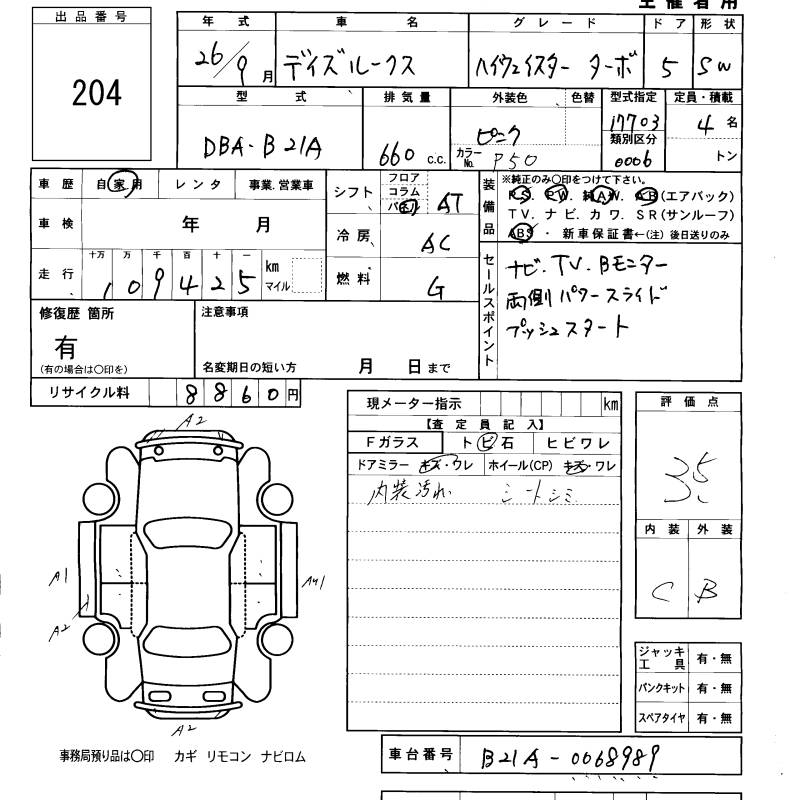 主催者用
出品番号
204
年式 車名 グレード ドア 形状
26/9月 デイズルークス ハイウェイスター ターボ 5 SW
型式 排気量 外装色 色替 型式指定 定員・積載
DBA-B21A 660 C.C. ピンク 17703 4名
カラーNo. P50 類別区分 0006 トン
車歴 自家用 レンタ 事業.営業車
シフト フロア コラム パネル AT
装備品 ※純正のみ〇印をつけて下さい。
PS. PW. 純AW. AB(エアバック)
TV. ナビ. カワ. SR(サンルーフ)
ABS ・ 新車保証書←(注)後日送りのみ
車検 年 月
冷房 AC
走行 十万 万 千 百 十 一
109425 km マイル
燃料 G
セールスポイント
ナビ. TV. Bモニター
両側パワースライド
プッシュスタート
修復歴 箇所
有
(有の場合は〇印を)
注意事項
名変期日の短い方 月 日まで
リサイクル料 8860円
現メーター指示 km
【査定員記入】
Fガラス トビ石 ヒビワレ
ドアミラー キズ・ワレ ホイール(CP) キズ・ワレ
内装汚れ シートシミ
評価点
3.5
内装 外装
C B
A2
A1
A2
A2
ジャッキ工具 有・無
パンクキット 有・無
スペアタイヤ 有・無
事務局預り品は〇印 カギ リモコン ナビロム
車台番号 B21A-0068989